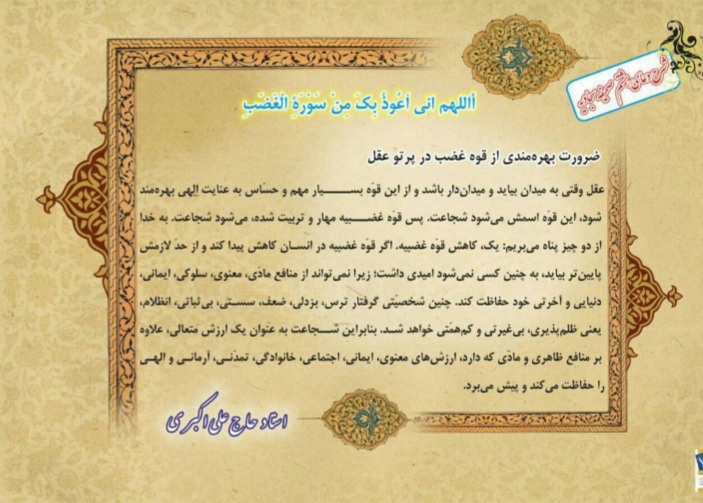 شرح دعای هشتم صحیفه سجادیه
أاللهم انی اَعُوذُ بِکَ مِنْ سَوْرَةِ الْغَضَبِ
ضرورت بهره‌مندی از قوه غضب در پرتو عقل
عقل وقتی به میدان بیاید و میدان‌دار باشد و از این قوّه بسیار مهم و حسّاس به عنایت الهی بهره‌مند
شود، این قوّه اسمش می‌شود شجاعت. پس قوّه غضبیه مهار و تربیت شده، می‌شود شجاعت. به خدا
از دو چیز پناه می‌بریم: یک، کاهش قوّه غضبیه. اگر قوّه غضبیه در انسان کاهش پیدا کند و از حدّ لازمش
پایین‌تر بیاید، به چنین کسی نمی‌شود امیدی داشت؛ زیرا نمی‌تواند از منافع مادّی، معنوی، سلوکی، ایمانی،
دنیایی و آخرتی خود حفاظت کند. چنین شخصیّتی گرفتار ترس، بزدلی، ضعف، سستی، بی‌ثباتی، انظلام،
یعنی ظلم‌پذیری، بی‌غیرتی و کم‌همّتی خواهد شد. بنابراین شجاعت به عنوان یک ارزش متعالی، علاوه
بر منافع ظاهری و مادّی که دارد، ارزش‌های معنوی، ایمانی، اجتماعی، خانوادگی، تمدّنی، آرمانی و الهی
را حفاظت می‌کند و پیش می‌برد.
استاد حاج علی اکبری